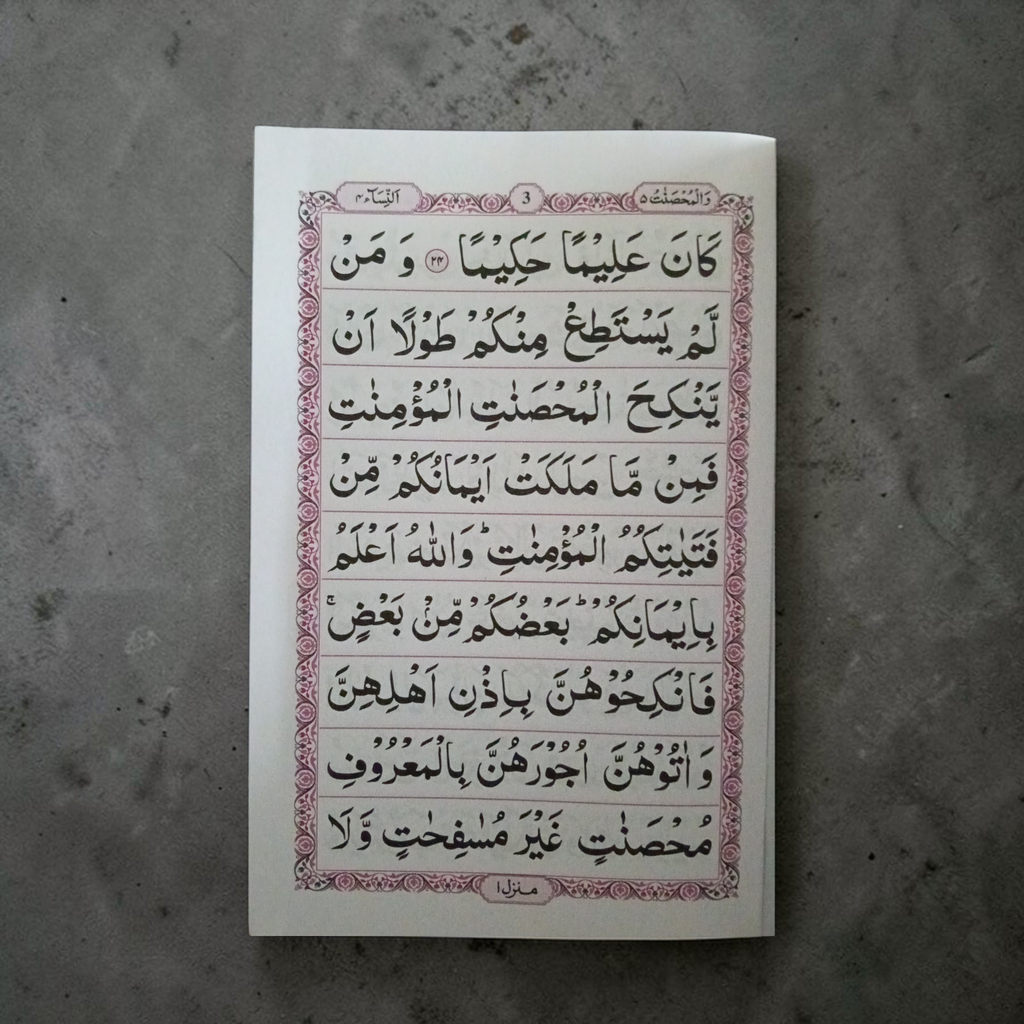 وَالْمُحْصَنٰتُ ۵
3
اَلنِّسَآء ۴
كَانَ عَلِيْمًا حَكِيْمًا ۲۴ وَ مَنْ
لَّمْ يَسْتَطِعْ مِنْكُمْ طَوْلًا اَنْ
يَّنْكِحَ الْمُحْصَنٰتِ الْمُؤْمِنٰتِ
فَمِنْ مَّا مَلَكَتْ اَيْمَانُكُمْ مِّنْ
فَتَيٰتِكُمُ الْمُؤْمِنٰتِ ؕ وَاللّٰهُ اَعْلَمُ
بِاِيْمَانِكُمْ ؕ بَعْضُكُمْ مِّنْۢ بَعْضٍ ۚ
فَانْكِحُوْهُنَّ بِاِذْنِ اَهْلِهِنَّ
وَ اٰتُوْهُنَّ اُجُوْرَهُنَّ بِالْمَعْرُوْفِ
مُحْصَنٰتٍ غَيْرَ مُسٰفِحٰتٍ وَّ لَا
منزل ۱